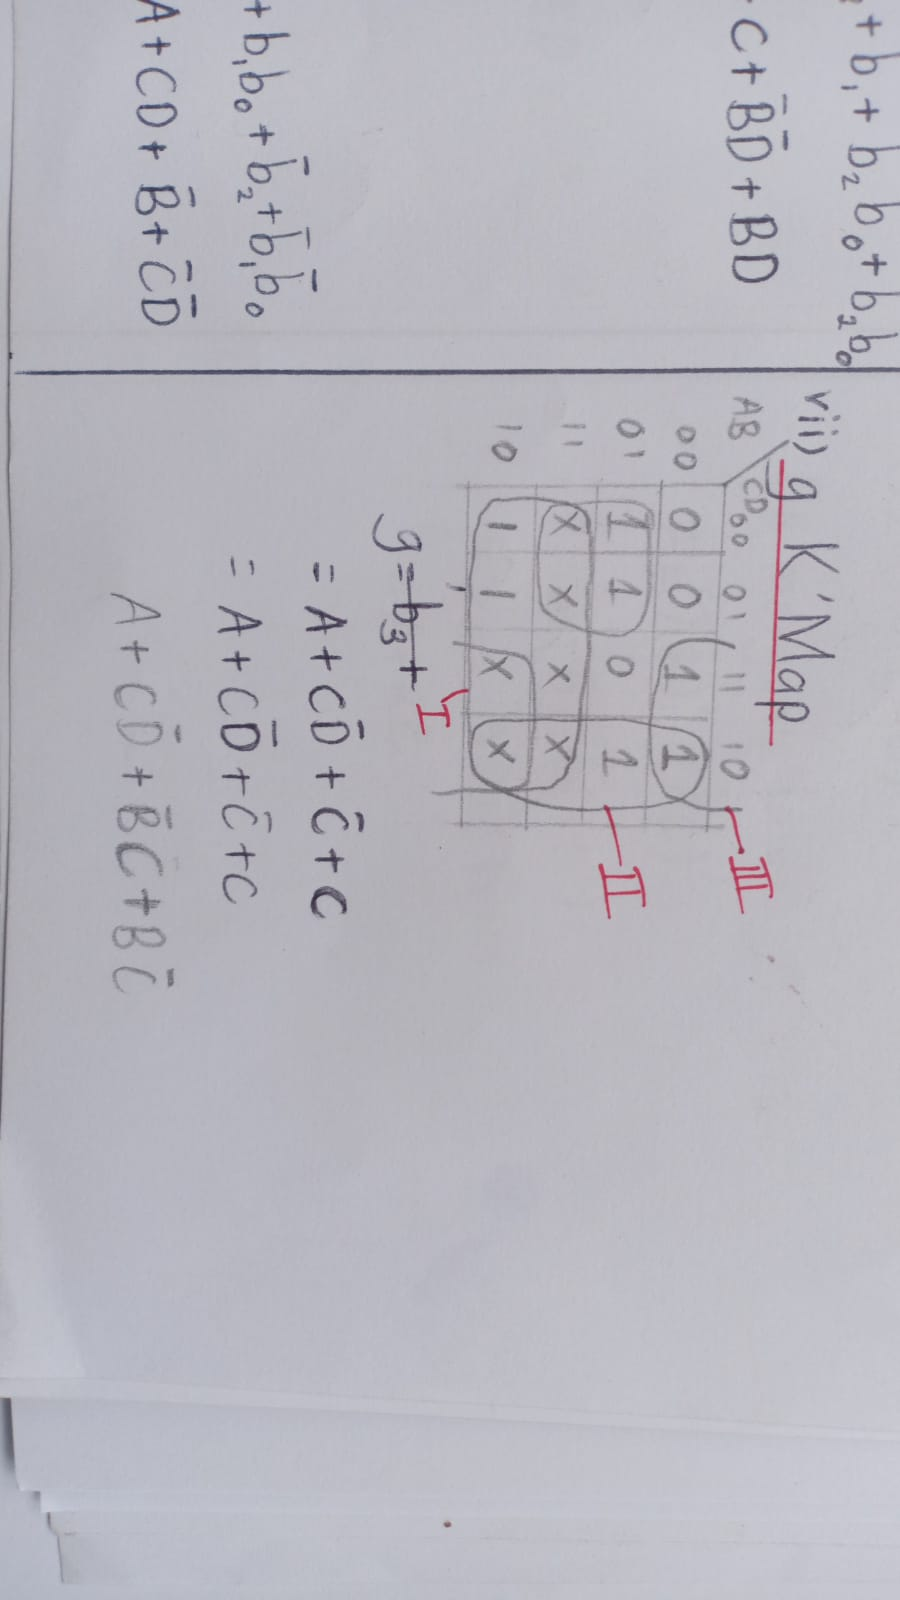 + b₁ + b₂b₀ + b₂b₀
C + B̄D̄ + BD
+ b₁b₀ + b̄₂ + b̄₁b̄₀
A + CD + B̄ + C̄D̄
vii) g K'Map
AB CD 00 01 11 10
00 0 0 1 1
01 1 1 0 1
11 X X X X
10 1 1 X X
I
II
III
g = b₃ +
= A + CD̄ + C̄ + C
= A + CD̄ + C̄ + C
A + CD̄ + B̄C + BC̄